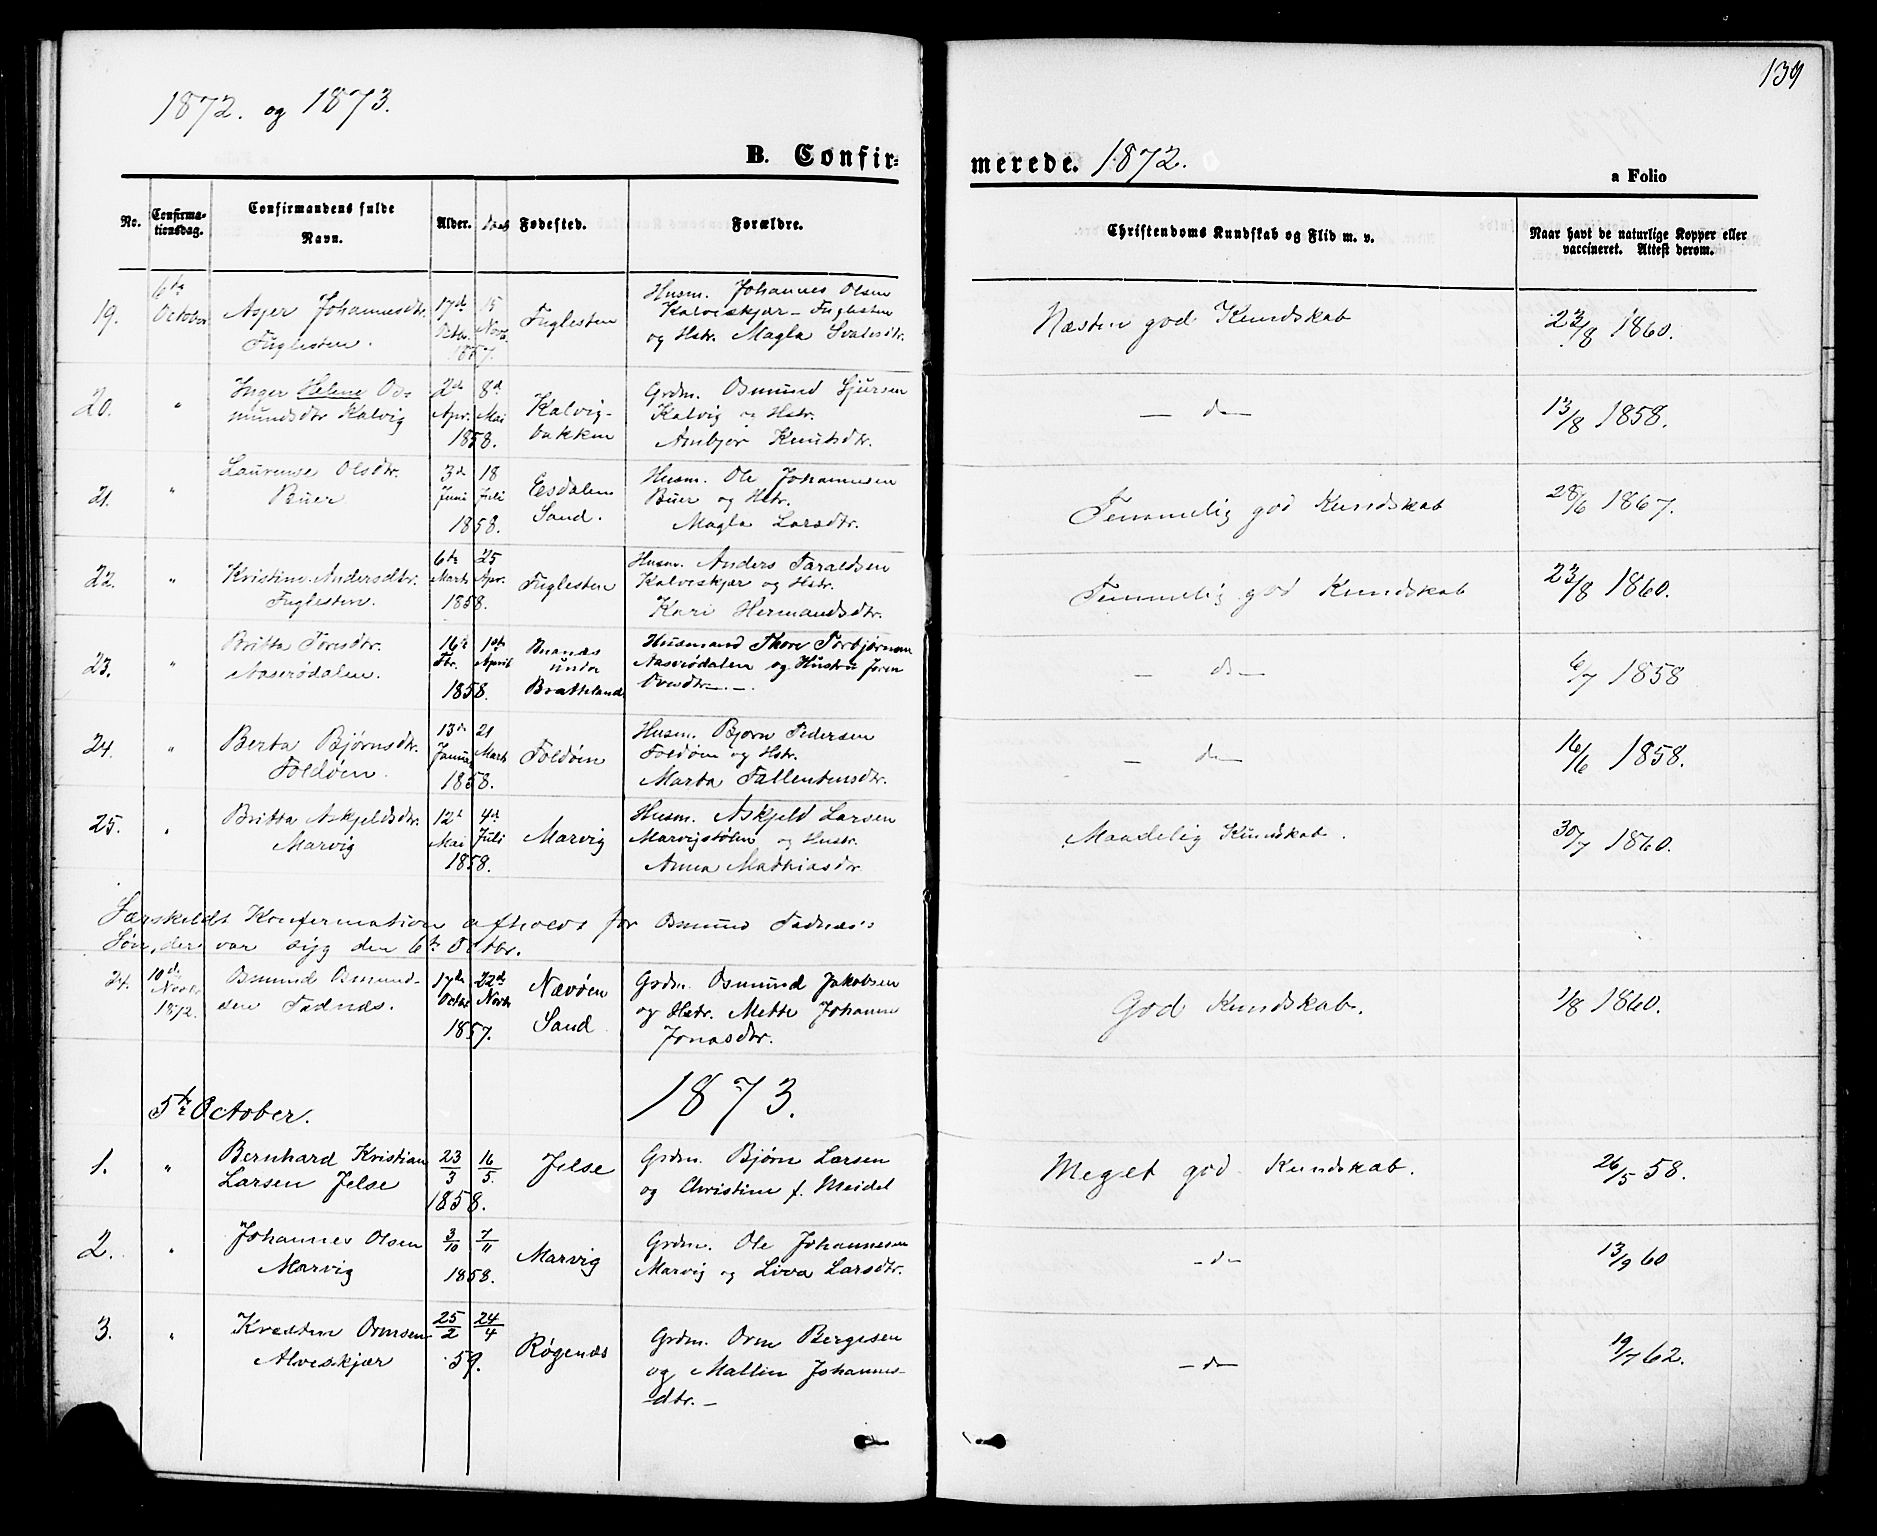 1872. og 1873.
139
B. Confir=
merede. 1872.
a Folio
No.
Confirma-
tionsdag.
Confirmandens fulde
Navn.
Alder.
Daab
Fødested.
Forældre.
Christendoms Kundskab og Flid m. v.
Naar havt de naturlige Kopper eller
vaccineret. Attest derom.
19. 6te October
Asjer Johannesdtr. Fuglesten.
17d Octbr. 15 Novb. 1857.
Fuglesten
Husm. Johannes Olsen
Kalveskjær - Fuglesten
og Hstr. Magla
Næsten god Kundskab
23/8 1860.
20. "
Inger Helene Os-
mundsdtr Kalvig
2d Apr. 8d Mai 1858.
Kalvig-
bakken
Grdm. Osmund Sjursen
Kalvig og Hstr.
Anbjør Knutsdtr.
— d —
13/8 1858.
21. "
Laurense Olsdtr.
Buer
3d Juni 18 Juli 1858.
Eesdalen
Sand.
Husm. Ole Johannesen
Buer og Hstr.
Magla Larsdtr.
Temmelig god Kundskab
28/6 1867.
22. "
Kristine Andersdtr.
Fuglesten.
6te Marts 25 Apr. 1858.
Fuglesten
Husm. Anders Taraldsen
Kalveskjær og Hstr.
Kari Hermandsdtr.
Temmelig god Kundskab
23/8 1860.
23. "
Britta Toresdtr.
Aaserødalen.
16te Fbr. 1ste April 1858.
under
Bratteland
Husmand Thore Torbjørnsen
Aaserødalen og Hustru Joren
— d —
6/7 1858
24. "
Berta Bjørnsdtr.
Foldøen.
13de Januar 21 Marts 1858.
Foldøen
Husm. Bjørn Pedersen
Foldøen og Hstr.
Marta Fallentensdtr.
— d —
16/6 1858.
25. "
Britta Askjeldsdtr.
Marvig
12t Mai 4d Juli 1858.
Marvig
Husm. Askjeld Larsen
Marvigstølen og Hustr.
Anna Mathiasdtr
Maadelig Kundskab.
30/7 1860.
Særskeldt Konfermation afholdt for Osmund Tednæs's
Søn, der var syg den 6te Octbr.
24. 10de Novbr 1872.
Osmund Osmund-
sen Tednæs.
17de Octbr 22de Novbr 1857.
Nævøen
Sand
Grdm. Osmund Jakobsen
og Hstr. Mette Johanne
Jonasdtr.
God Kundskab.
1/8 1860.
5te October.
1873.
1. "
Bernhard Kristian
Larsen Jelse
23/3 16/5 1858.
Jelse
Grdm. Bjørn Larsen
og Christine f. Meidel
Meget god Kundskab.
26/5 58.
2. "
Johannes Olsen
Marvig
3/10 7/11 1858.
Marvig
Grdm. Ole Johannesen
Marvig og Liva Larsdtr.
— d —
13/9 60
3. "
Ormsen
Alveskjær
25/2 24/4 59.
Røgenæs
Grdm. Orm Bergesen
og Mallin Johannes-
dtr. —
— d —
19/7 62.